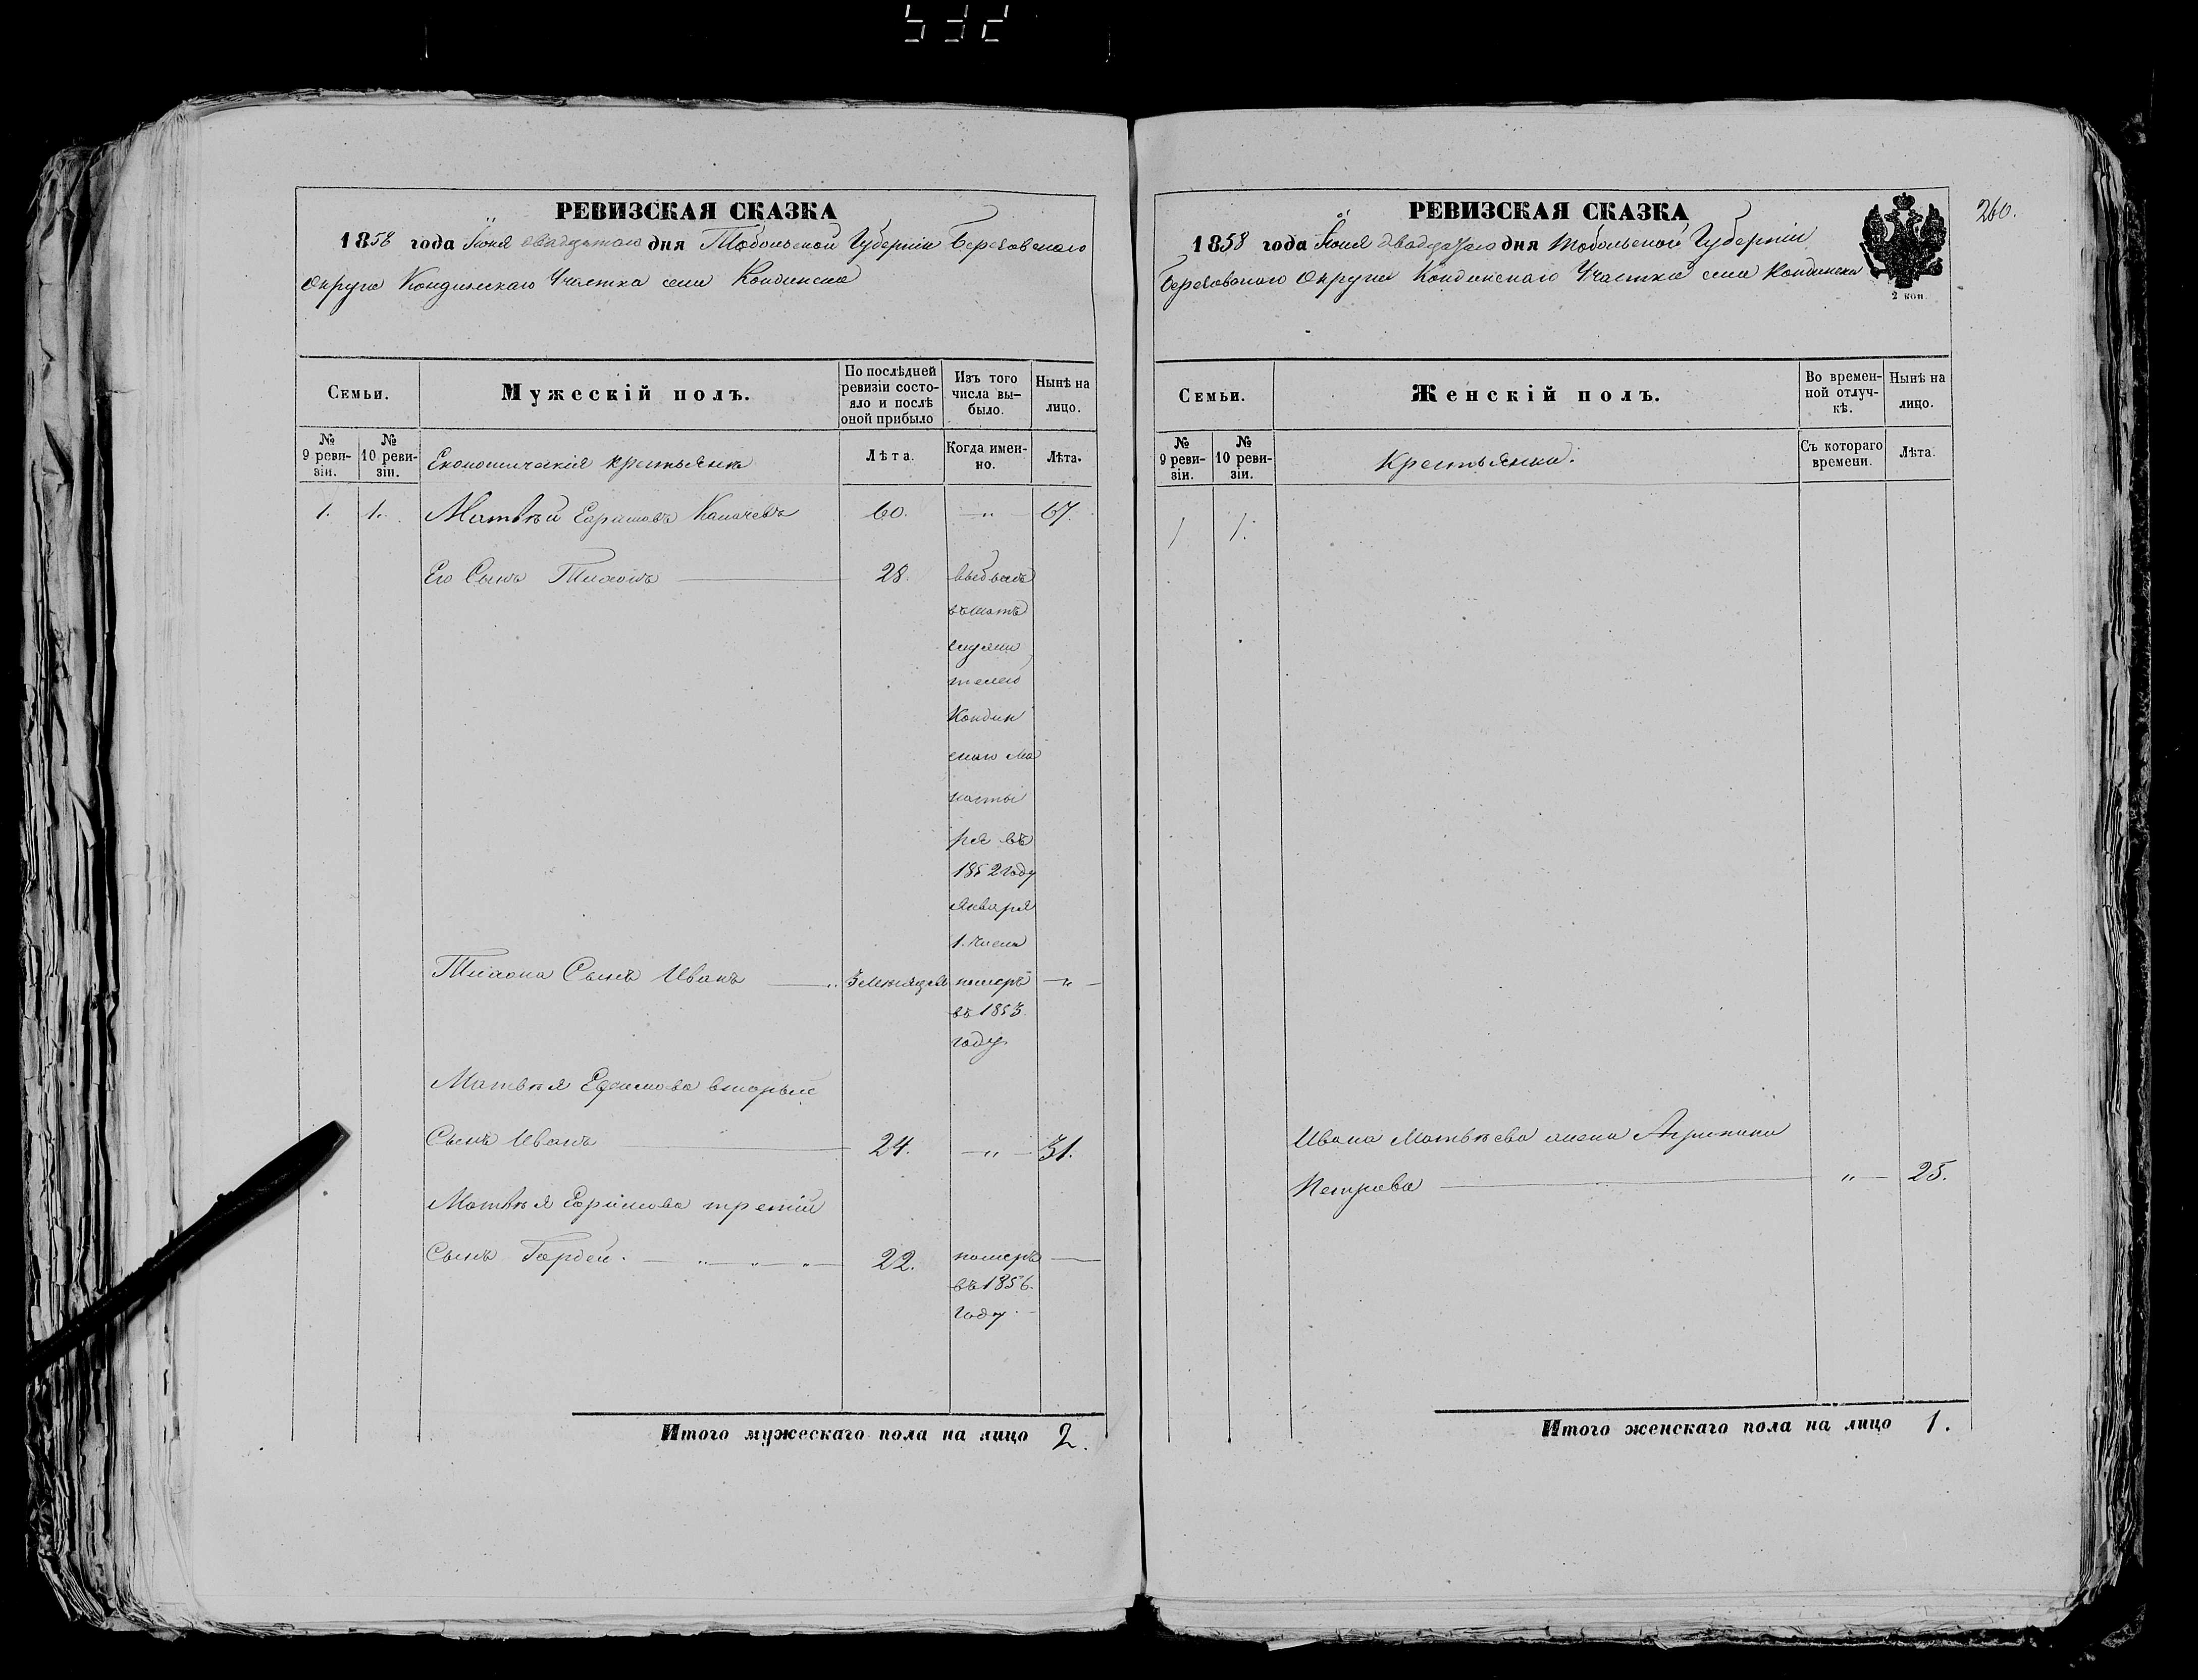 532
РЕВИЗСКАЯ СКАЗКА
1858 года Іюня двадцатаго дня Тобольской Губерніи Березовскаго
Округа Кондинскаго Участка села Кондинска
Семьи.
Мужескій полъ.
По послѣдней
ревизіи состо-
яло и послѣ
оной прибыло
Изъ того
числа вы-
было.
Нынѣ на
лицо.
№
9 реви-
зіи.
№
10 реви-
зіи.
Економическія крестьяне
Лѣта.
Когда имен-
но.
Лѣта.
1. 1. Матвѣй Ефимовъ 60. — " — 67.
Его Сынъ Тихонъ 28. выбылъ
въ штатъ
служи
телей
Кондин
скаго Мо
насты
ря въ
1852 году
Января
1. числа
Тихона Сынъ Иванъ — " 3 месяцовъ померъ — " —
въ 1853
году
Матвѣя Ефимова вторый
Сынъ Иванъ 24. — " — 31.
Матвѣя Ефимова третій
Сынъ Гордей. — " — " — " — 22. померъ —
въ 1856.
году. —
Итого мужескаго пола на лицо 2.
260.
РЕВИЗСКАЯ СКАЗКА
1858 года Іюня двадцатаго дня Тобольской Губерніи
Березовскаго Округа Кондинскаго Участка села Кондинска
2 коп.
Семьи.
Женскій полъ.
Во времен-
ной отлуч-
кѣ.
Нынѣ на
лицо.
№
9 реви-
зіи.
№
10 реви-
зіи.
Крестьянки.
Съ котораго
времени.
Лѣта.
1 1.
Ивана Матвѣева жена Агрипина
Петрова — " — 25.
Итого женскаго пола на лицо 1.